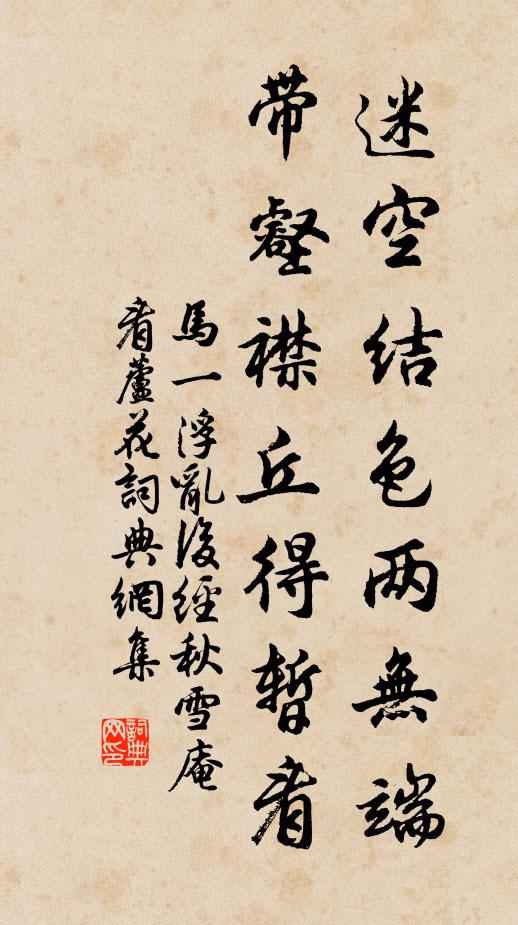 迷空结色两無端
带壑襟丘得暫看
馬一浮亂後經秋雪庵
看蘆花詞典網集
詞典
网印